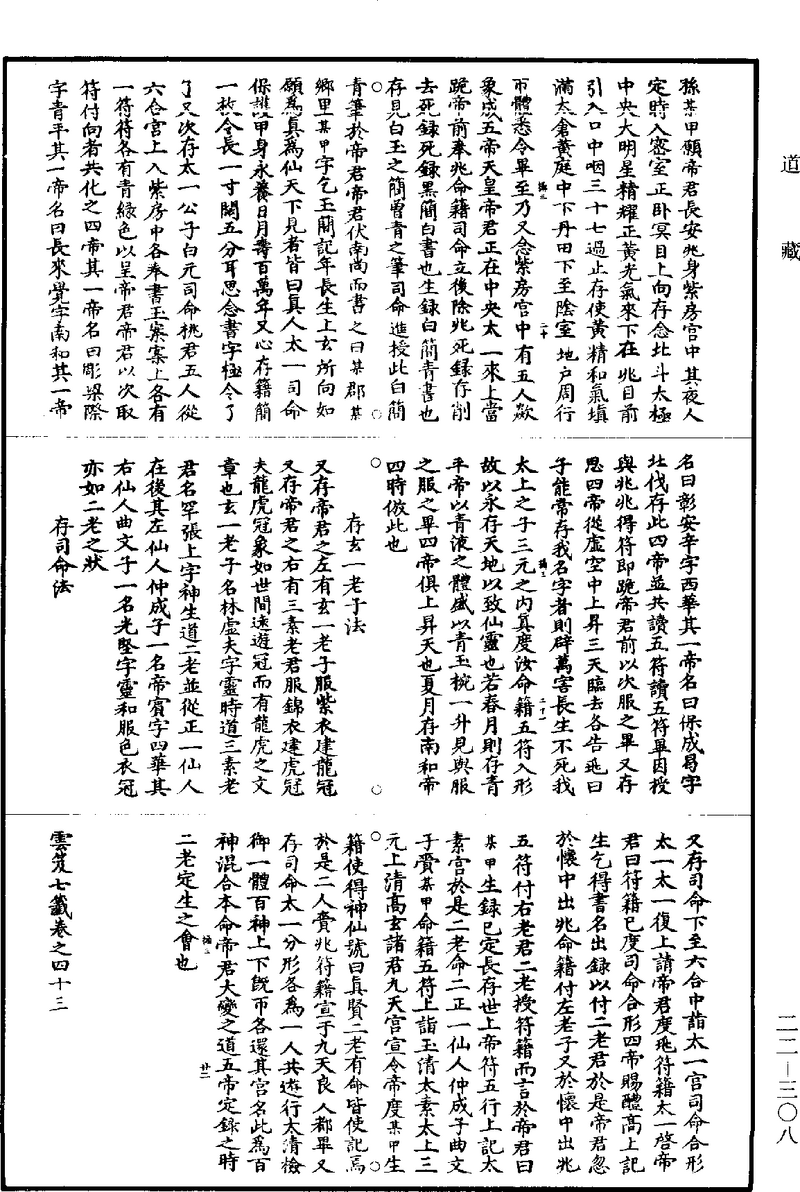 道藏
孫某甲願帝君長安兆身紫房宮中其夜人
定時入密室正卧冥目上向存念北斗太極
中央大明星精耀正黃光氣來下在兆目前
引入口中咽三十七過止存使黃精和氣填
滿太倉黃庭中下丹田下至陰室地戶周行
帀體悉令畢至乃又念紫房宮中有五人歘
象成五帝天皇帝君正在中央太一來上當
跪帝前奉兆命籍司命立後除兆死録存削
去死録死録黑簡白書也生録白簡青書也
存見白玉之簡曾青之筆司命進授此白簡
青筆於帝君帝君伏南面而書之曰某郡某
鄉里某甲字乞玉簡記年長生上玄所向如
願為真為仙天下見者皆曰真人太一司命
保護甲身永養日月壽百萬年又心存籍簡
一枚令長一寸闊五分耳思念書字極令了
了又次存太一公子白元司命桃君五人從
六合宮上入紫房中各奉書玉案案上各有
一符符各有青緑色以呈帝君帝君以次取
符付向者共化之四帝其一帝名曰彫梁際
字青平其一帝名曰長來覺字南和其一帝
名曰彰安幸字西華其一帝名曰保成曷字
北伐存此四帝並共讀五符讀五符畢因授
與兆兆得符即跪帝君前以次服之畢又存
思四帝從虛空中上昇三天臨去各告兆曰
子能常存我名字者則辟萬害長生不死我
太上之子三元之内真度汝命籍五符入形
故以永存天地以致仙靈也若春月則存青
平帝以青液之體盛以青玉椀一升見與服
之服之畢四帝俱上昇天也夏月存南和帝
四時倣此也
存玄一老子法
又存帝君之左有玄一老子服紫衣建龍冠
又存帝君之右有三素老君服錦衣建虎冠
夫龍虎冠象如世間遠遊冠而有龍虎之文
章也玄一老子名林虛夫字靈時道三素老
君名罕張上字神生道二老並從正一仙人
在後其左仙人仲成子一名帝賓字四華其
右仙人曲文子一名光堅字靈和服色衣冠
亦如二老之狀
存司命法
又存司命下至六合中詣太一宮司命合形
太一太一復上請帝君度兆符籍太一啓帝
君曰符籍已度司命合形四帝賜醴高上記
生乞得書名出録以付二老君於是帝君忽
於懷中出兆命籍付左老子又於懷中出兆
五符付右老君二老授符籍而言於帝君曰
某甲生録已定長存世上帝符五行上記太
素宮於是二老命二正一仙人仲成子曲文
子賫某甲命籍五符上詣玉清太素太上三
元上清高玄諸君九天宮宣令帝度某甲生
籍使得神仙號曰真賢二老有命皆使記焉
於是二人賫兆符籍宣于九天良人都畢又
存司命太一分形各為一人共遊行太清檢
御一體百神上下既帀各還其宮名此為百
神混合本命帝君大變之道五帝定録之時
二老定生之會也
雲笈七籤卷之四十三
二二—三〇八